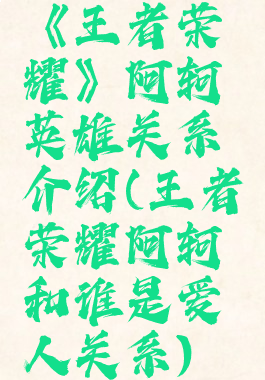 《王者荣
耀》阿轲
英雄关系
介绍(王者
荣耀阿轲
和谁是爱
人关系)